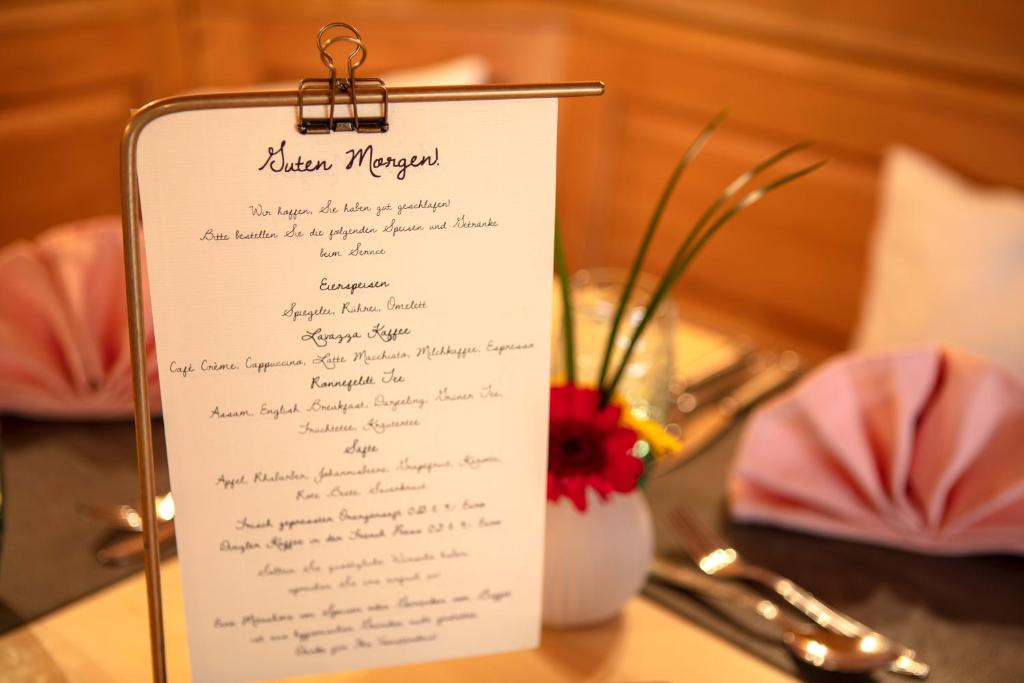 Guten Morgen!
Wir hoffen, Sie haben gut geschlafen!
Bitte bestellen Sie die folgenden Speisen und Getränke
beim Service
Eierspeisen
Spiegelei, Rührei, Omelett
Lavazza Kaffee
Café Crème, Cappuccino, Latte Macchiato, Milchkaffee, Espresso
Ronnefeldt Tee
Assam, English Breakfast, Darjeeling, Grüner Tee,
Früchtetee, Kräutertee
Säfte
Apfel, Rhabarber, Johannisbeere, Grapefruit, Karotte,
Rote Bete, Sauerkraut
Frisch gepresster Orangensaft 0,2 l 4,- Euro
Kaffee in der French Press 0,2 l 4,- Euro
Sollten Sie zusätzliche Wünsche haben,
sprechen Sie uns einfach an!
Eine Mitnahme von Speisen oder Getränken vom Buffet
ist aus hygienischen Gründen nicht gestattet.
Danke für Ihr Verständnis!